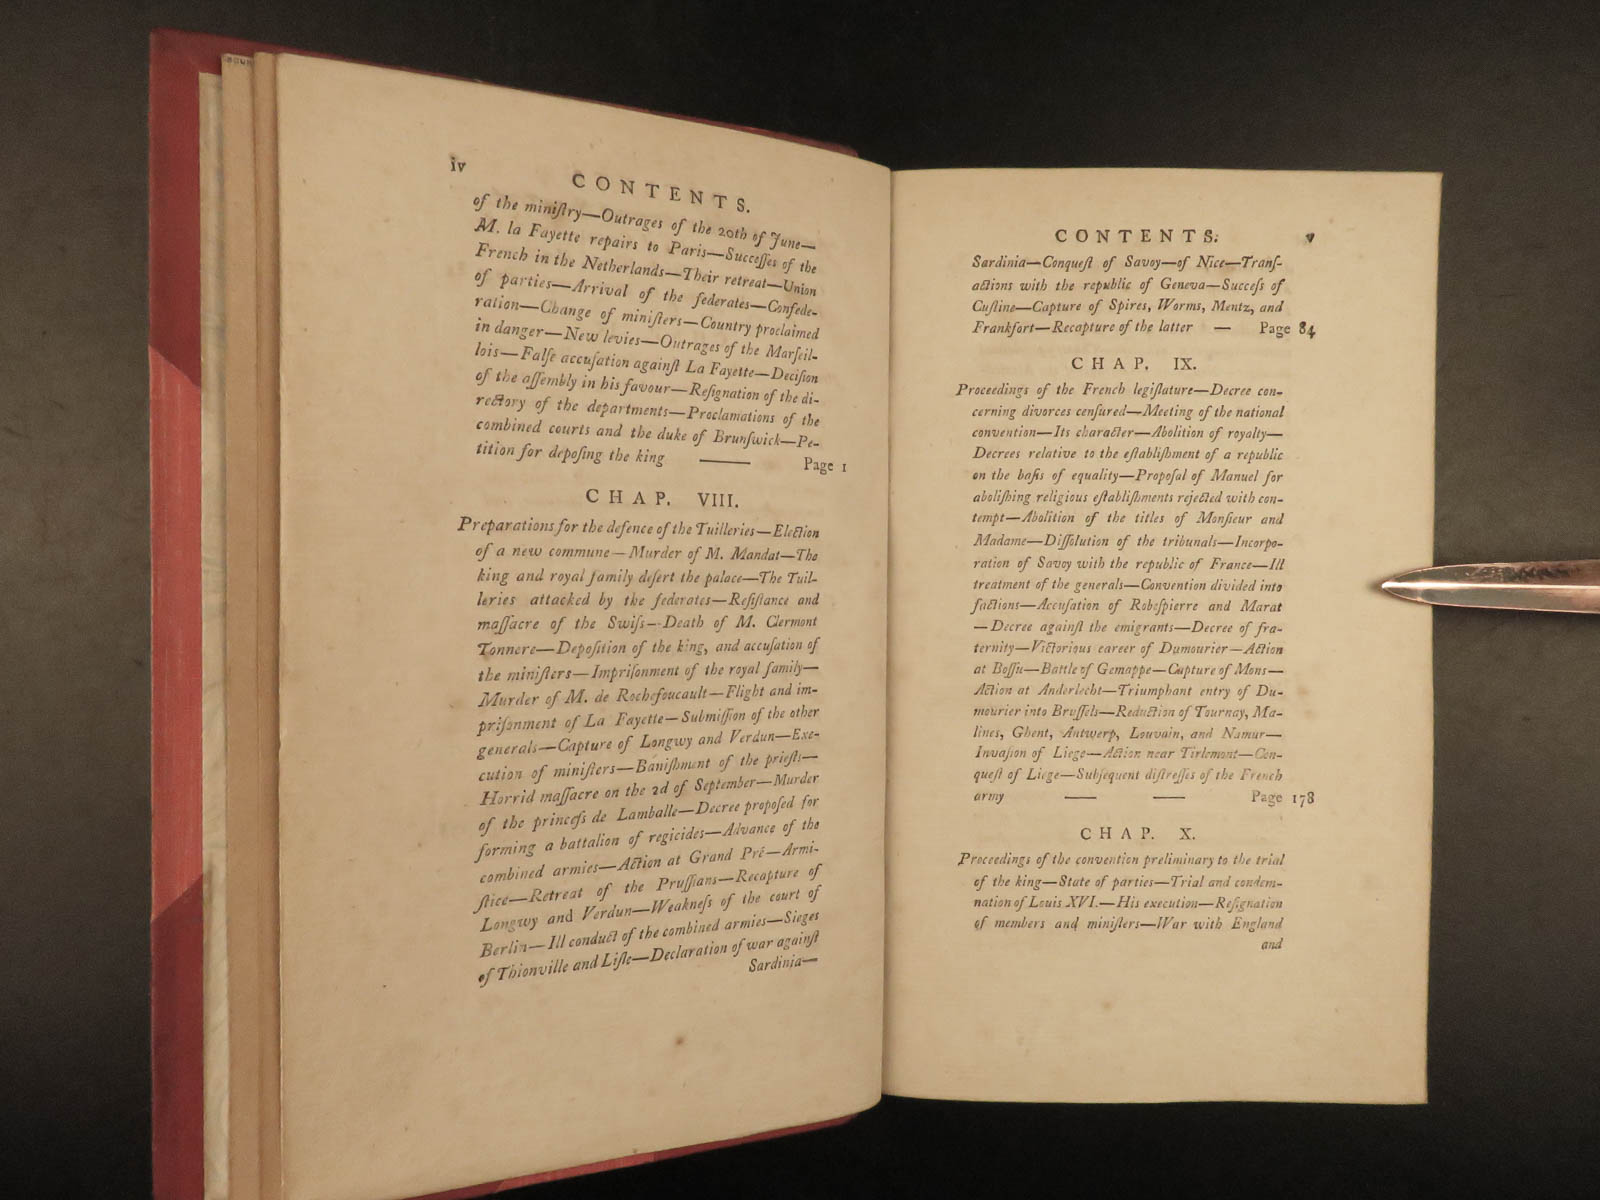 iv
CONTENTS.
of the miniſtry—Outrages of the 20th of June—
M. la Fayette repairs to Paris—Succeſſes of the
French in the Netherlands—Their retreat—Union
of parties—Arrival of the federates—Confede-
ration—Change of miniſters—Country proclaimed
in danger—New levies—Outrages of the Marſeil-
lois—Falſe accuſation againſt La Fayette—Deciſion
of the aſſembly in his favour—Reſignation of the di-
rectory of the departments—Proclamations of the
combined courts and the duke of Brunſwick—Pe-
tition for depoſing the king —— Page 1
CHAP. VIII.
Preparations for the defence of the Tuilleries—Election
of a new commune—Murder of M. Mandat—The
king and royal family deſert the palace—The Tuil-
leries attacked by the federates—Reſiſtance and
maſſacre of the Swiſs—Death of M. Clermont
Tonnere—Depoſition of the king, and accuſation of
the miniſters—Impriſonment of the royal family—
Murder of M. de Rochefoucault—Flight and im-
priſonment of La Fayette—Submiſſion of the other
generals—Capture of Longwy and Verdun—Exe-
cution of miniſters—Baniſhment of the prieſts—
Horrid maſſacre on the 2d of September—Murder
of the princeſs de Lamballe—Decree propoſed for
forming a battalion of regicides—Advance of the
combined armies—Action at Grand Pré—Armi-
ſtice—Retreat of the Pruſſians—Recapture of
Longwy and Verdun—Weakneſs of the court of
Berlin—Ill conduct of the combined armies—Sieges
of Thionville and Liſle—Declaration of war againſt
Sardinia—
CONTENTS. v
Sardinia—Conqueſt of Savoy—of Nice—Tranſ-
actions with the republic of Geneva—Succeſs of
Cuſtine—Capture of Spires, Worms, Mentz, and
Frankfort—Recapture of the latter — Page 84
CHAP. IX.
Proceedings of the French legiſlature—Decree con-
cerning divorces cenſured—Meeting of the national
convention—Its character—Abolition of royalty—
Decrees relative to the eſtabliſhment of a republic
on the baſis of equality—Propoſal of Manuel for
aboliſhing religious eſtabliſhments rejected with con-
tempt—Abolition of the titles of Monſieur and
Madame—Diſſolution of the tribunals—Incorpo-
ration of Savoy with the republic of France—Ill
treatment of the generals—Convention divided into
factions—Accuſation of Robeſpierre and Marat
—Decree againſt the emigrants—Decree of fra-
ternity—Victorious career of Dumourier—Action
at Boſſu—Battle of Gemappe—Capture of Mons—
Action at Anderlecht—Triumphant entry of Du-
mourier into Bruſſels—Reduction of Tournay, Ma-
lines, Ghent, Antwerp, Louvain, and Namur—
Invaſion of Liege—Action near Tirlemont—Con-
queſt of Liege—Subſequent diſtreſſes of the French
army —— —— Page 178
CHAP. X.
Proceedings of the convention preliminary to the trial
of the king—State of parties—Trial and condem-
nation of Louis XVI.—His execution—Reſignation
of members and miniſters—War with England
and